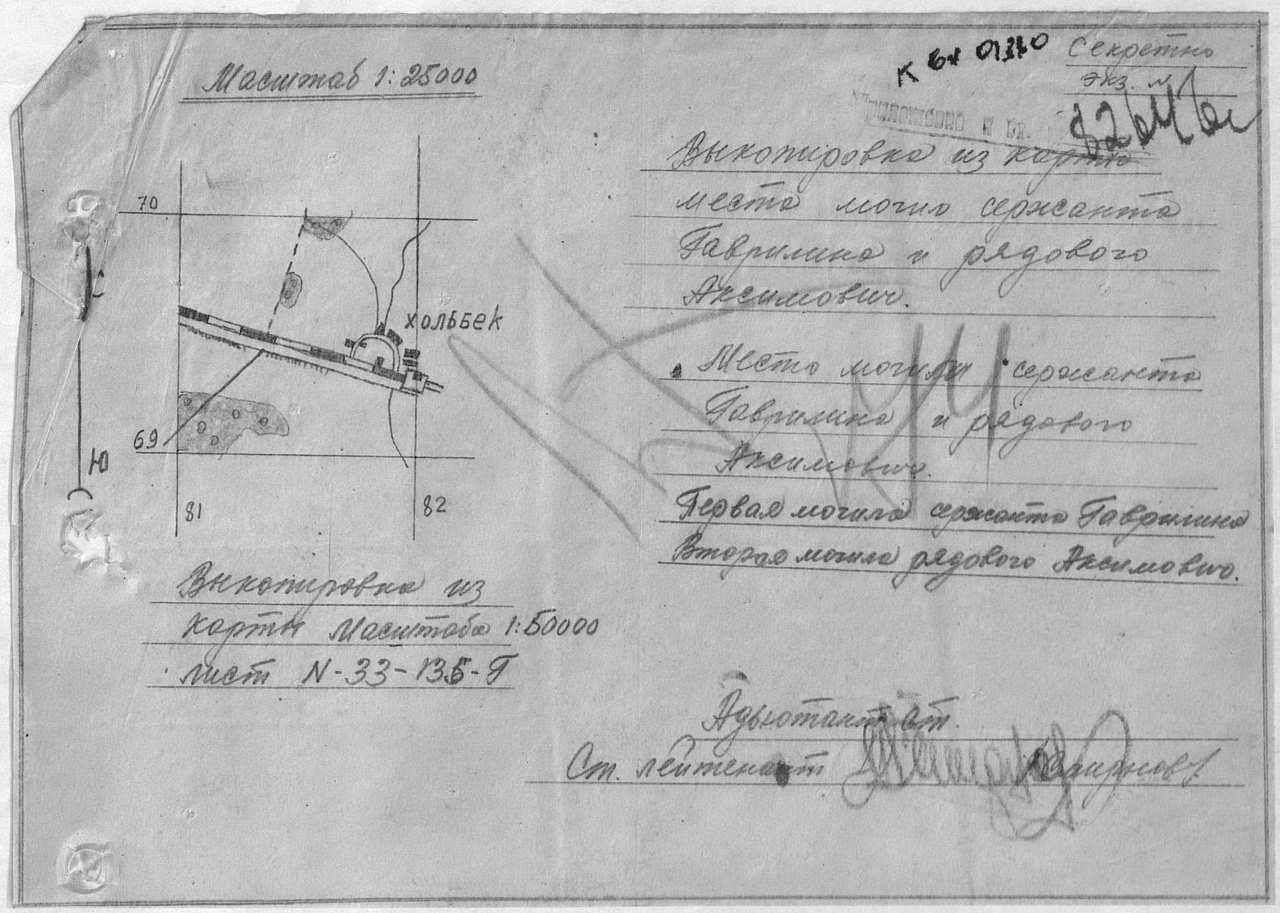 Масштаб 1:25000
К вх 01310
Секретно
экз. №
Приложение к вх.
Выкопировка из карты
места могил сержанта
Гаврилина и рядового
Аксимович.
70
ХОЛЬБЕК
69
Ю
81
82
Место могилы сержанта
Гаврилина и рядового
Аксимович.
Первая могила сержанта Гаврилина
Вторая могила рядового Аксимович.
Выкопировка из
карты Масштаба 1:50000
лист N-33-135-Г
Адьютант ст.
Ст. лейтенант Смирнов